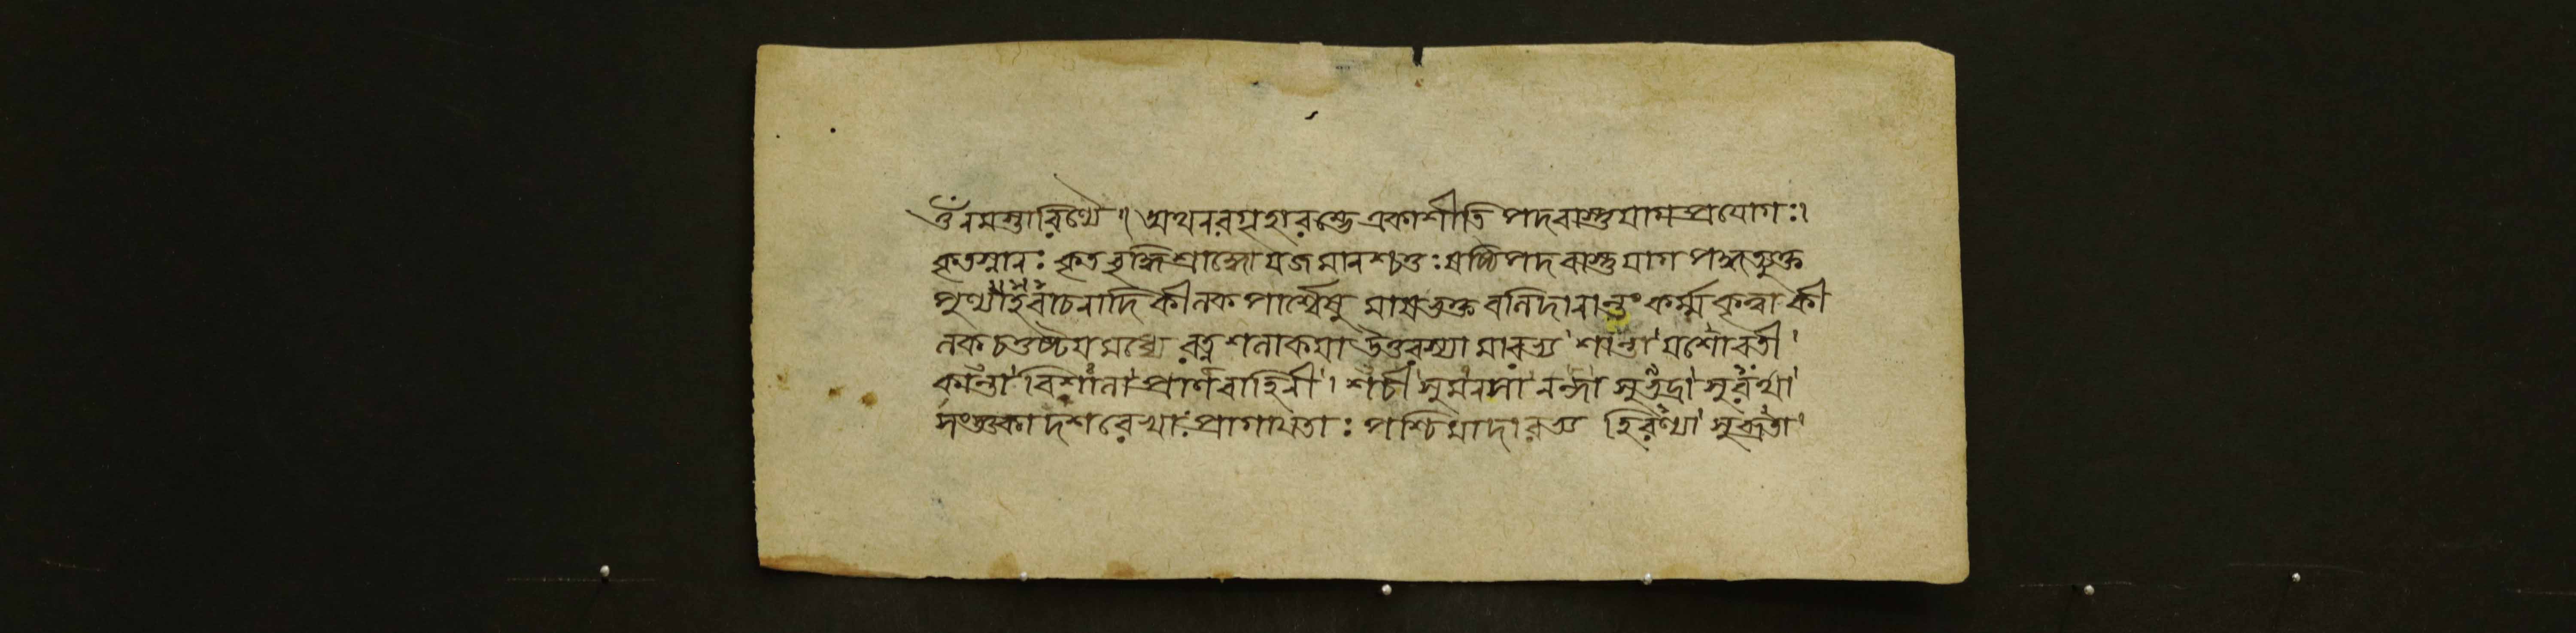 ওঁ নমস্তারিণ্যৈ। অথ নবগৃহারম্ভে একাশীতিপদবাস্তুযাগপ্রযোগঃ।
কৃতস্নানঃ কৃতবৃদ্ধিশ্রাদ্ধো যজমানশ্চতুঃষষ্ঠিপদবাস্তুযাগপদ্ধত্যুক্ত
পুণ্যাহবাচনাদি কীলকপার্শ্বেষু মাষভক্তবলিদানান্তং কর্ম্ম কৃত্বা কী
লকচতুষ্টয়মধ্যে রত্নশলাকয়া উত্তরস্যামারভ্য শান্তা যশোবতী
কান্তা বিশালা প্রাণবাহিনী। শচী সুমনসা নন্দা সুভদ্রা সুরথা
সংজ্ঞকা দশ রেখাঃ প্রাগায়তাঃ পশ্চিমাদারভ্য হিরণ্যা সুব্রতা